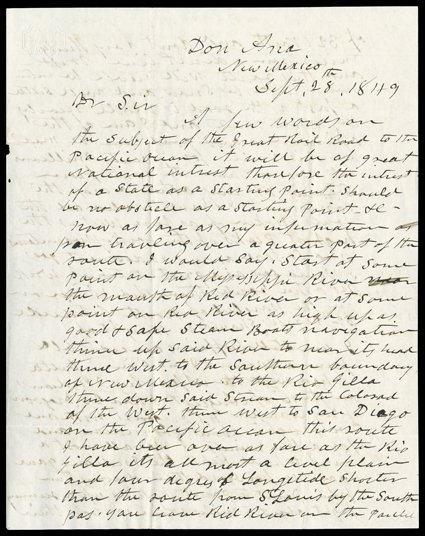 Don Ana
New Mexico
Sept. 28th, 1849
Dr Sir
A few words on
the Subject of the Great Rail Road to the
Pacific Ocean it will be of great
National intrest therefore the intrest
of a State as a Starting Point. Should
be no obsticle as a Starting Point - &c -
now as fare as my infermation
traveling over a greater part of the
route. I would Say. Start at Some
Point on the Mississippi River near
the mauth of Red River or at Some
point on Red River as high up as
good & Safe Steam Boats navigation
thence up Said River to near its head
thence West to the Southern boundary
of New Mexico. to the Rio Gilla
thence down Said Stream to the Colorad
of the West. thence West to San Diago
on the Pacific accan this route
I have been over as fare as the Rio
Gilla its all most a level plain
and four degres of Longetide Shorter
than the route from St Louis by the South
pas. you leave Red River on the Parilel